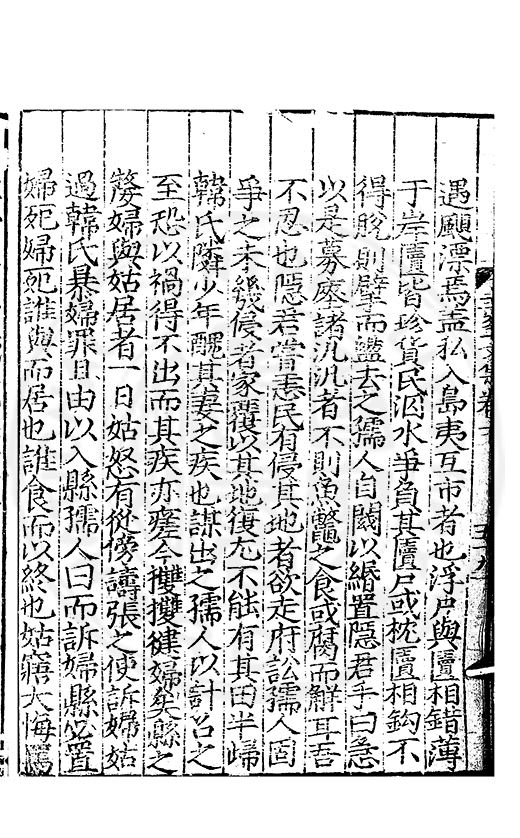 遇颶漂焉盖私入島夷互市者也浮尸與匵相錯薄
于岸匵皆珍貨民泅水爭負其匵尸或枕匵相鈎不
得脫則擘而盬去之孺人自閣以緡置隱君手曰急
以是募瘞諸汎汎者不則魚鼈之食或腐而解耳吾
不忍也隱君嘗恚民有侵其地者欲走府訟孺人固
爭之未幾侵者家覆以其地復尢不能有其田半歸
韓氏隣少年醜其妻之疾也謀出之孺人以計召之
至恐以禍得不出而其疾亦瘥今㩳㩳健婦矣縣之
嫠婦與姑居者一日姑怒有從傍譸張之使訴婦姑
過韓氏暴婦罪且由以入縣孺人曰而訴婦縣必置
婦死婦死誰與而居也誰食而以終也姑寤大悔罵